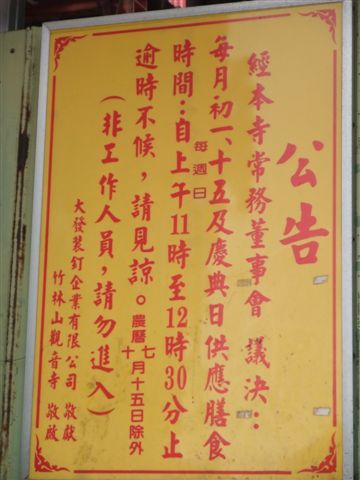 公告
經本寺常務董事會議決：
每月初一、十五及慶典日供應膳食
每週日
時間：自上午11時至12時30分止
逾時不候，請見諒。農曆七十月十五日除外
（非工作人員，請勿進入）
大發裝釘企業有限公司 敬獻
竹林山觀音寺 敬啟